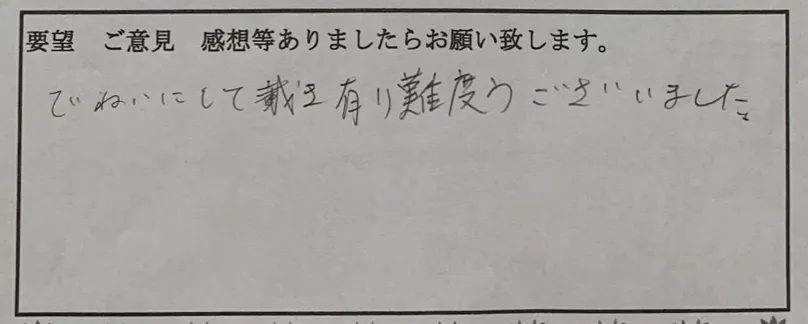 要望　ご意見　感想等ありましたらお願い致します。
でねいにして戴き有り難度うございました。